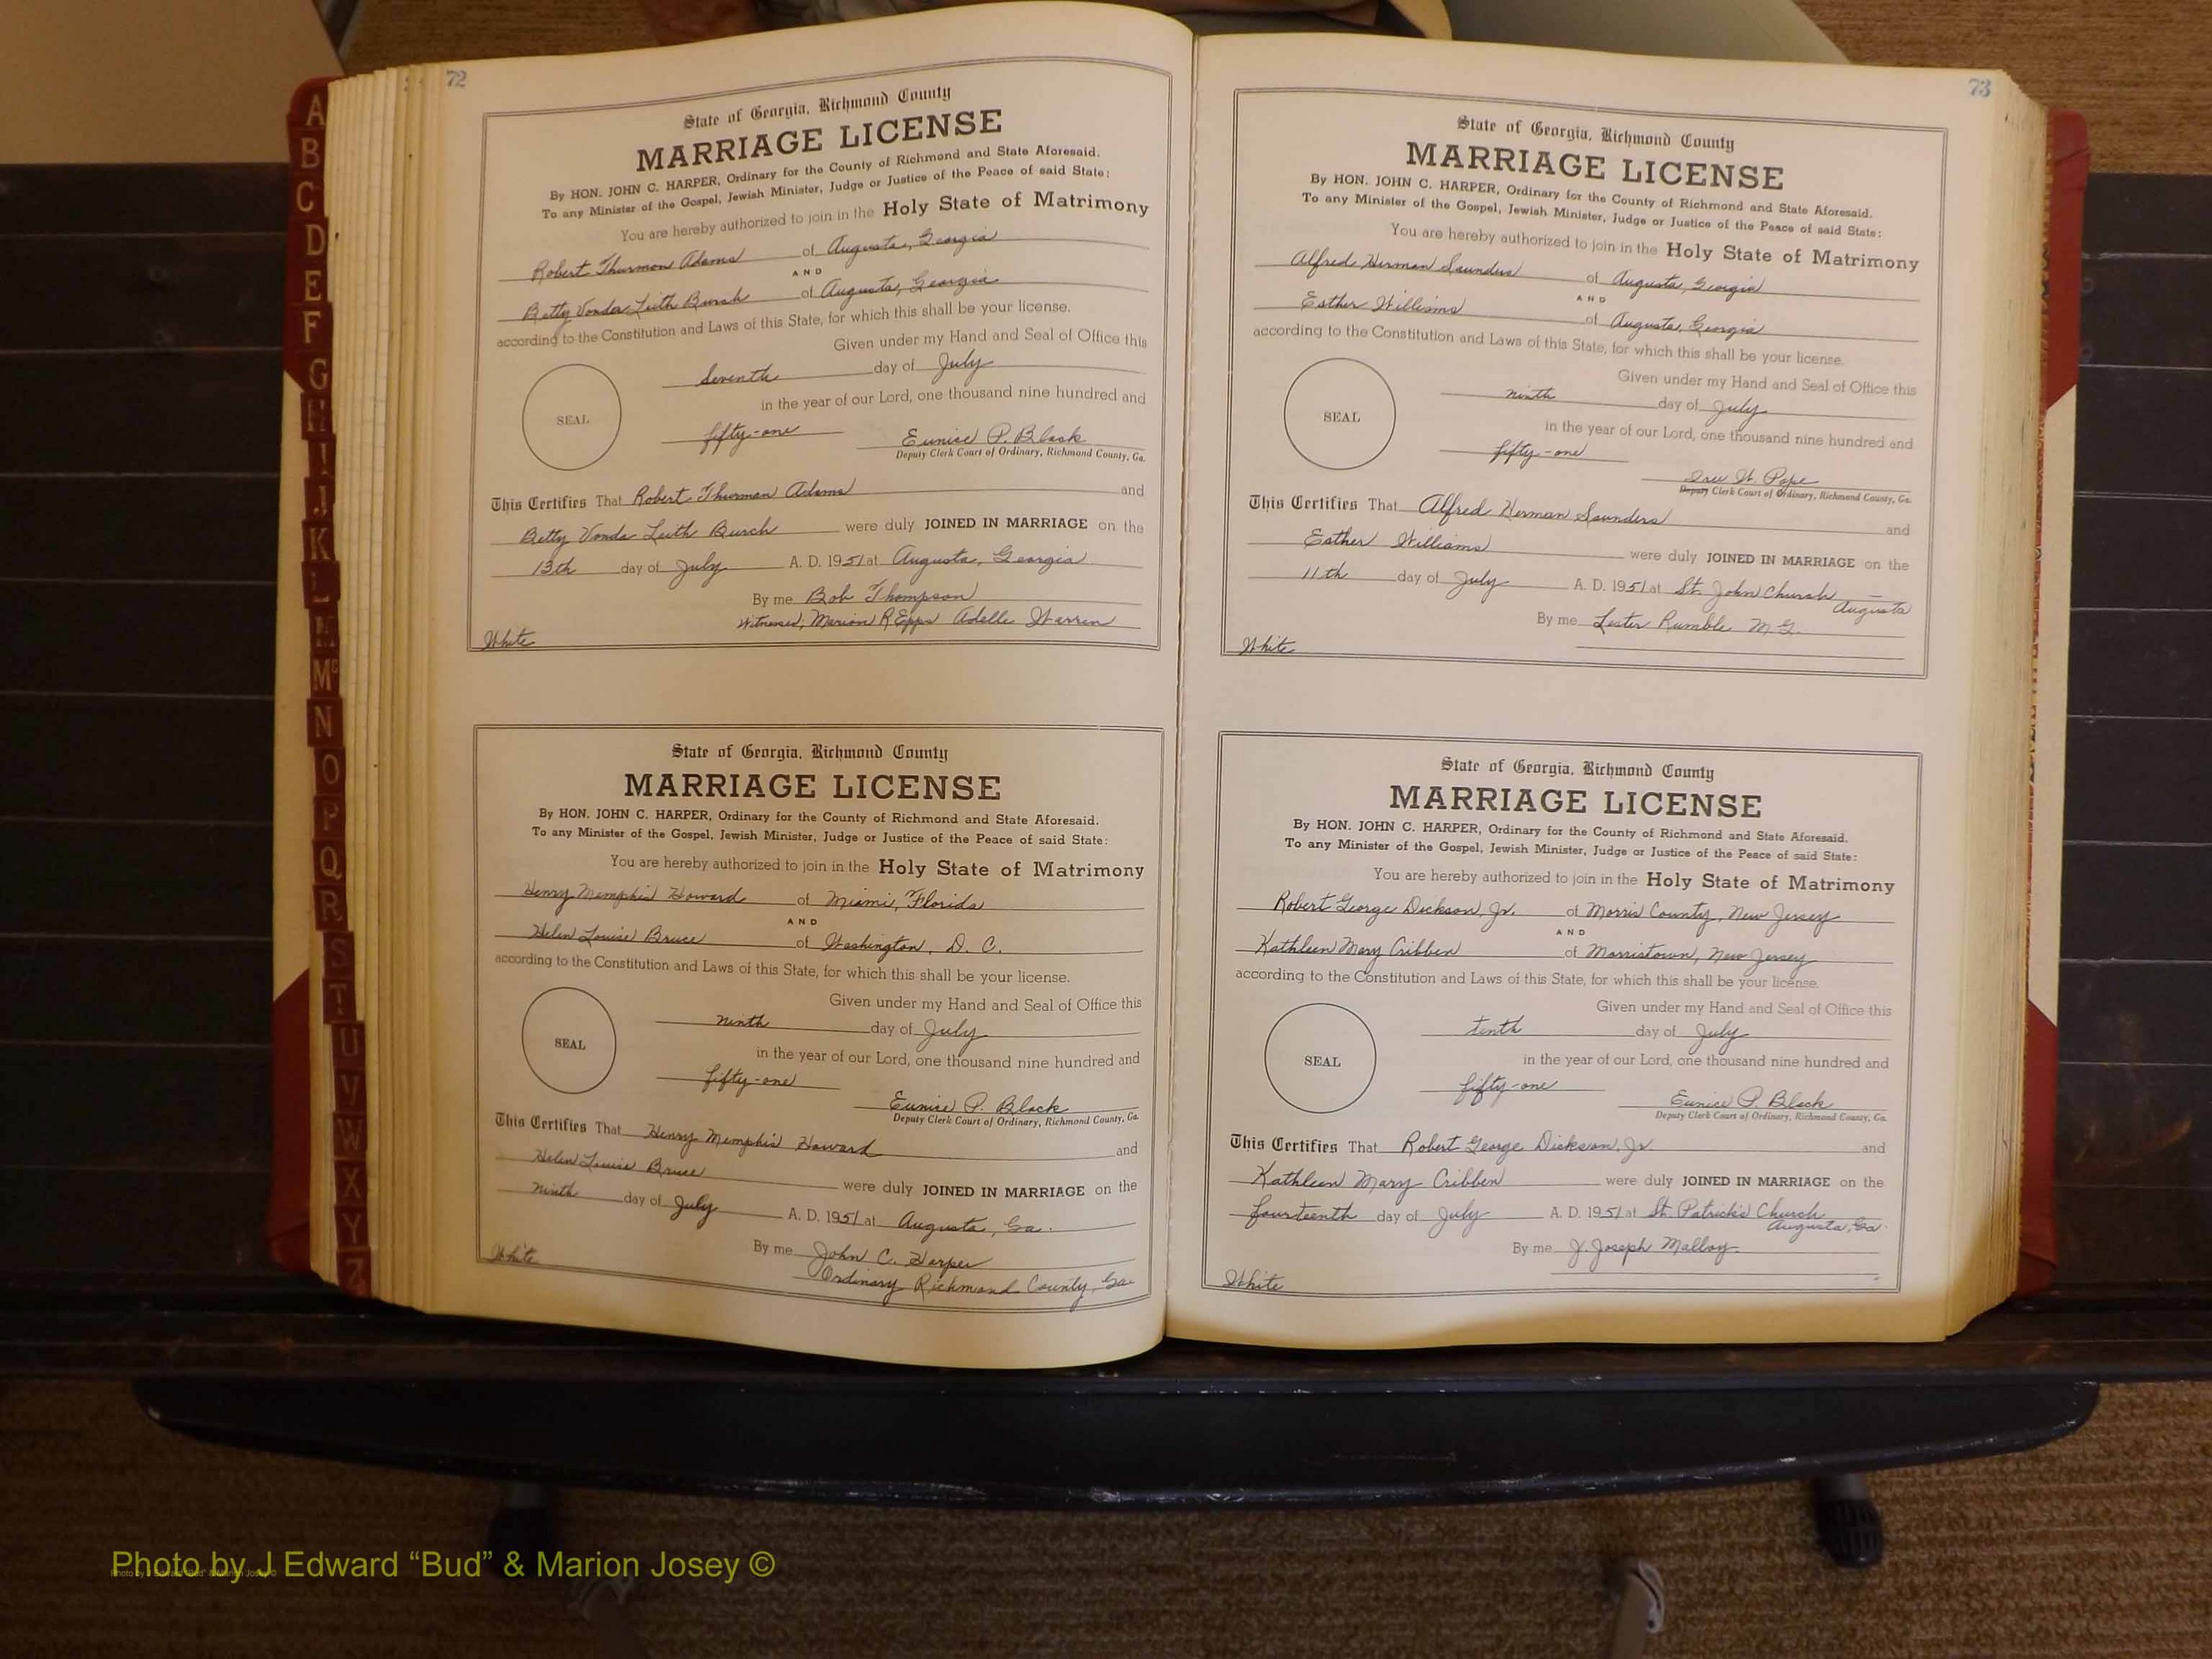 72
State of Georgia, Richmond County
MARRIAGE LICENSE
By HON. JOHN C. HARPER, Ordinary for the County of Richmond and State Aforesaid.
To any Minister of the Gospel, Jewish Minister, Judge or Justice of the Peace of said State:
You are hereby authorized to join in the Holy State of Matrimony
Robert Thurmon Adams of Augusta, Georgia
AND
Betty Vonda Leith Burch of Augusta, Georgia
according to the Constitution and Laws of this State, for which this shall be your license.
Given under my Hand and Seal of Office this
Seventh day of July
in the year of our Lord, one thousand nine hundred and
SEAL
fifty-one Eunice P. Black
Deputy Clerk Court of Ordinary, Richmond County, Ga.
This Certifies That Robert Thurman Adams and
Betty Vonda Leith Burch were duly JOINED IN MARRIAGE on the
13th day of July A. D. 1951 at Augusta, Georgia
By me Bob Thompson
Witnesses, Marion R Epps Adelle Warren
White
State of Georgia, Richmond County
MARRIAGE LICENSE
By HON. JOHN C. HARPER, Ordinary for the County of Richmond and State Aforesaid.
To any Minister of the Gospel, Jewish Minister, Judge or Justice of the Peace of said State:
You are hereby authorized to join in the Holy State of Matrimony
Henry Memphis Howard of Miami, Florida
AND
Helen Louise Bruce of Washington, D. C.
according to the Constitution and Laws of this State, for which this shall be your license.
Given under my Hand and Seal of Office this
ninth day of July
SEAL
in the year of our Lord, one thousand nine hundred and
fifty-one Eunice P. Black
Deputy Clerk Court of Ordinary, Richmond County, Ga.
This Certifies That Henry Memphis Howard and
Helen Louise Bruce were duly JOINED IN MARRIAGE on the
ninth day of July A. D. 1951 at Augusta, Ga.
By me John C. Harper
Ordinary Richmond County, Ga.
White
73
State of Georgia, Richmond County
MARRIAGE LICENSE
By HON. JOHN C. HARPER, Ordinary for the County of Richmond and State Aforesaid.
To any Minister of the Gospel, Jewish Minister, Judge or Justice of the Peace of said State:
You are hereby authorized to join in the Holy State of Matrimony
Alfred Herman Saunders of Augusta, Georgia
AND
Esther Williams of Augusta, Georgia
according to the Constitution and Laws of this State, for which this shall be your license.
Given under my Hand and Seal of Office this
ninth day of July
SEAL
in the year of our Lord, one thousand nine hundred and
fifty-one
Pope
Deputy Clerk Court of Ordinary, Richmond County, Ga.
This Certifies That Alfred Herman Saunders and
Esther Williams were duly JOINED IN MARRIAGE on the
11th day of July A. D. 1951 at St. John Church - Augusta
By me Lester Rumble M G.
White
State of Georgia, Richmond County
MARRIAGE LICENSE
By HON. JOHN C. HARPER, Ordinary for the County of Richmond and State Aforesaid.
To any Minister of the Gospel, Jewish Minister, Judge or Justice of the Peace of said State:
You are hereby authorized to join in the Holy State of Matrimony
Robert George Dickson, Jr. of Morris County, New Jersey
AND
Kathleen Mary Cribben of Morristown, New Jersey
according to the Constitution and Laws of this State, for which this shall be your license.
Given under my Hand and Seal of Office this
tenth day of July
SEAL
in the year of our Lord, one thousand nine hundred and
fifty-one Eunice P. Black
Deputy Clerk Court of Ordinary, Richmond County, Ga.
This Certifies That Robert George Dickson, Jr. and
Kathleen Mary Cribben were duly JOINED IN MARRIAGE on the
fourteenth day of July A. D. 1951 at St. Patrick's Church
Augusta, Ga.
By me J. Joseph Malloy
White
A
B
C
D
E
F
G
H
I
J
K
L
M
Mc
N
O
P
Q
R
S
T
U
V
W
X
Y
Z
Photo by J Edward “Bud” & Marion Josey ©
Photo by J Edward “Bud” & Marion Josey ©